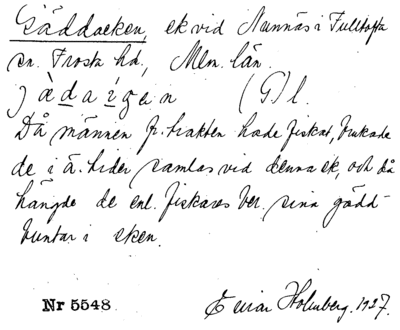 Gäddaeken, ek vid Nunnäs i Fulltofta
sn. Frosta hd., Mlm. län.
(G) l.
Då männen fr. trakten hade fiskat, brukade
de i ä. tider samlas vid denna ek, och då
hängde de enl. fiskares ber. sina gädd-
buntar i eken.
Nr 5548. Einar Holmberg. 1927.